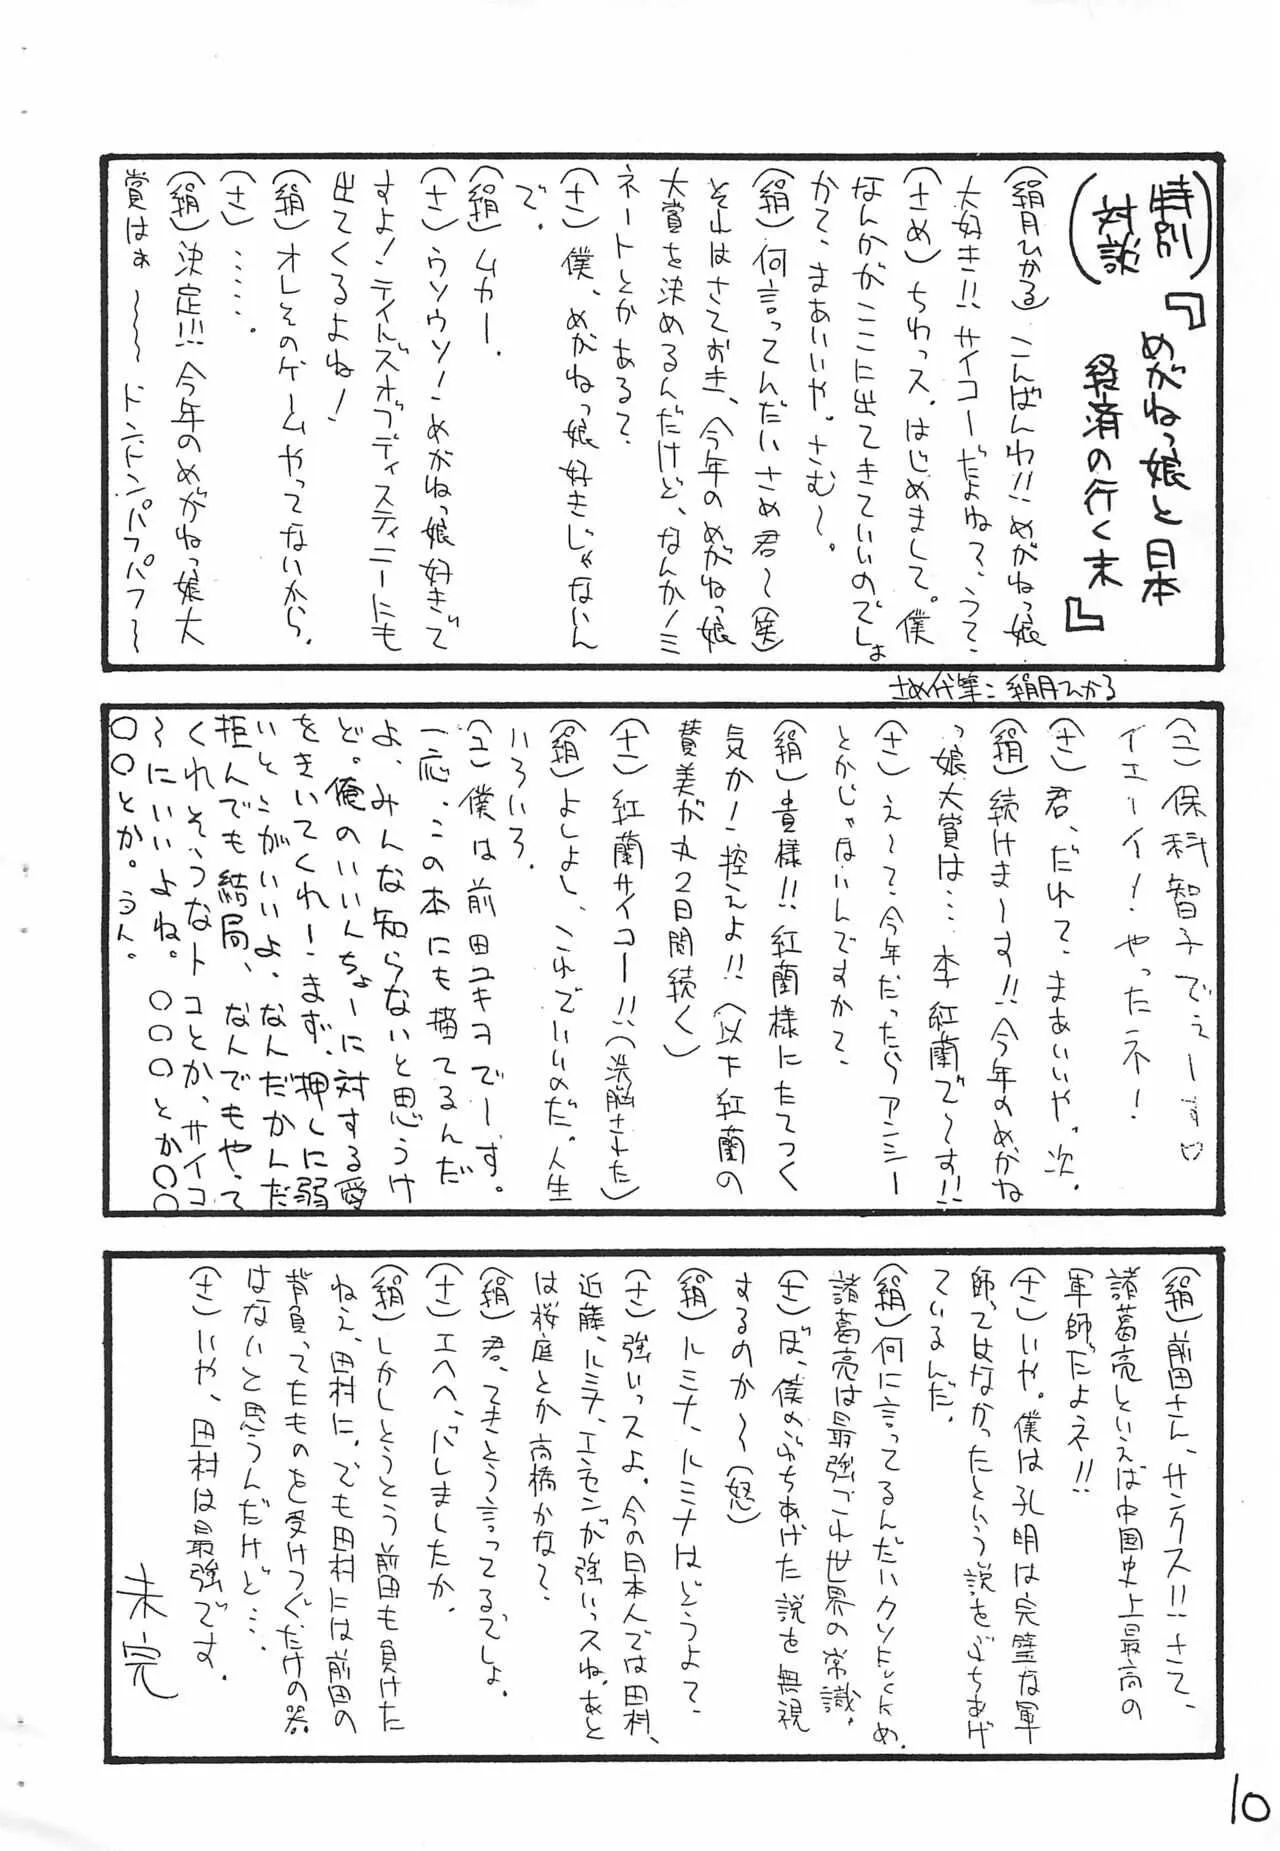 (特別対談)
『めがねっ娘と日本
経済の行く末』
(絹月ひかる)こんばんわ!!めがねっ娘
大好き!!サイコーだよね?、うて、
(さめ)ちわっス。はじめまして。僕
なんかがここに出てきていいのでしょ
かて、まあいいや。さむ〜。
(絹)何言ってんだいさめ君〜(笑)
それはさておき、今年のめがねっ娘
大賞を決めるんだけど、なんかノミ
ネートとかある?
(さ)僕、めがねっ娘好きじゃないん
で。
(絹)ムカー。
(さ)ウソウソ!めがねっ娘好きで
すよ!テイルズオブディスティニーにも
出てくるよね!
(絹)オレそのゲームやってないから。
(さ)……。
(絹)決定!!!今年のめがねっ娘大
賞はぁ〜〜〜ドンドンパフパフ〜
さめ代筆:絹月ひかる
(ユ)保科智子でぇーす♡
イエーイ!やったネ!
(さ)君、だれ?まあいいや。次。
(絹)続けま〜す!!今年のめがね
っ娘大賞は…李紅蘭で〜す!!
(さ)え〜?今年だったらアンシー
とかじゃないんですか?
(絹)貴様!!紅蘭様にたてつく
気か!控えよ!!(以下紅蘭の
賛美が丸2日間続く)
(さ)紅蘭サイコー!!(洗脳された)
(絹)よしよし、これでいいのだ。人生
いろいろ。
(ユ)僕は前田ユキヲでーす。
一応、この本にも描てるんだ
よ、みんな知らないと思うけ
ど。俺のいいんちょーに対する愛
をきいてくれー!まず、押しに弱
いとこがいいよ、なんだかんだ
拒んでも結局、なんでもやって
くれそうなトコとか、サイコ
〜にいいよね。○○○とか○○
○○とか。うん。
(絹)前田さん、サンクス!!さて、
諸葛亮といえば中国史上最高の
軍師だよネ!!
(さ)いや。僕は孔明は完璧な軍
師ってはなかったという説をぶちあげ
ているんだ。
(絹)何に言ってるんだいクソFuckめ。
諸葛亮は最強これ世界の常識。
(さ)ぼ、僕のぶちあげた説を無視
するのか〜(怒)
(絹)ルミナ、ルミナはどうよ?
(さ)強いっスよ。今の日本人では田村、
近藤、ルミナ、エンセンが強いっスね。あと
は桜庭とか高橋かな?
(絹)君、てきとう言ってるでしょ。
(さ)エヘヘ、バレましたか。
(絹)しかしとうとう前田も負けた
ねえ、田村に。でも田村には前田の
背負ってたものを受けつぐだけの器
はないと思うんだけど…。
(さ)いや、田村は最強です。
未完
10